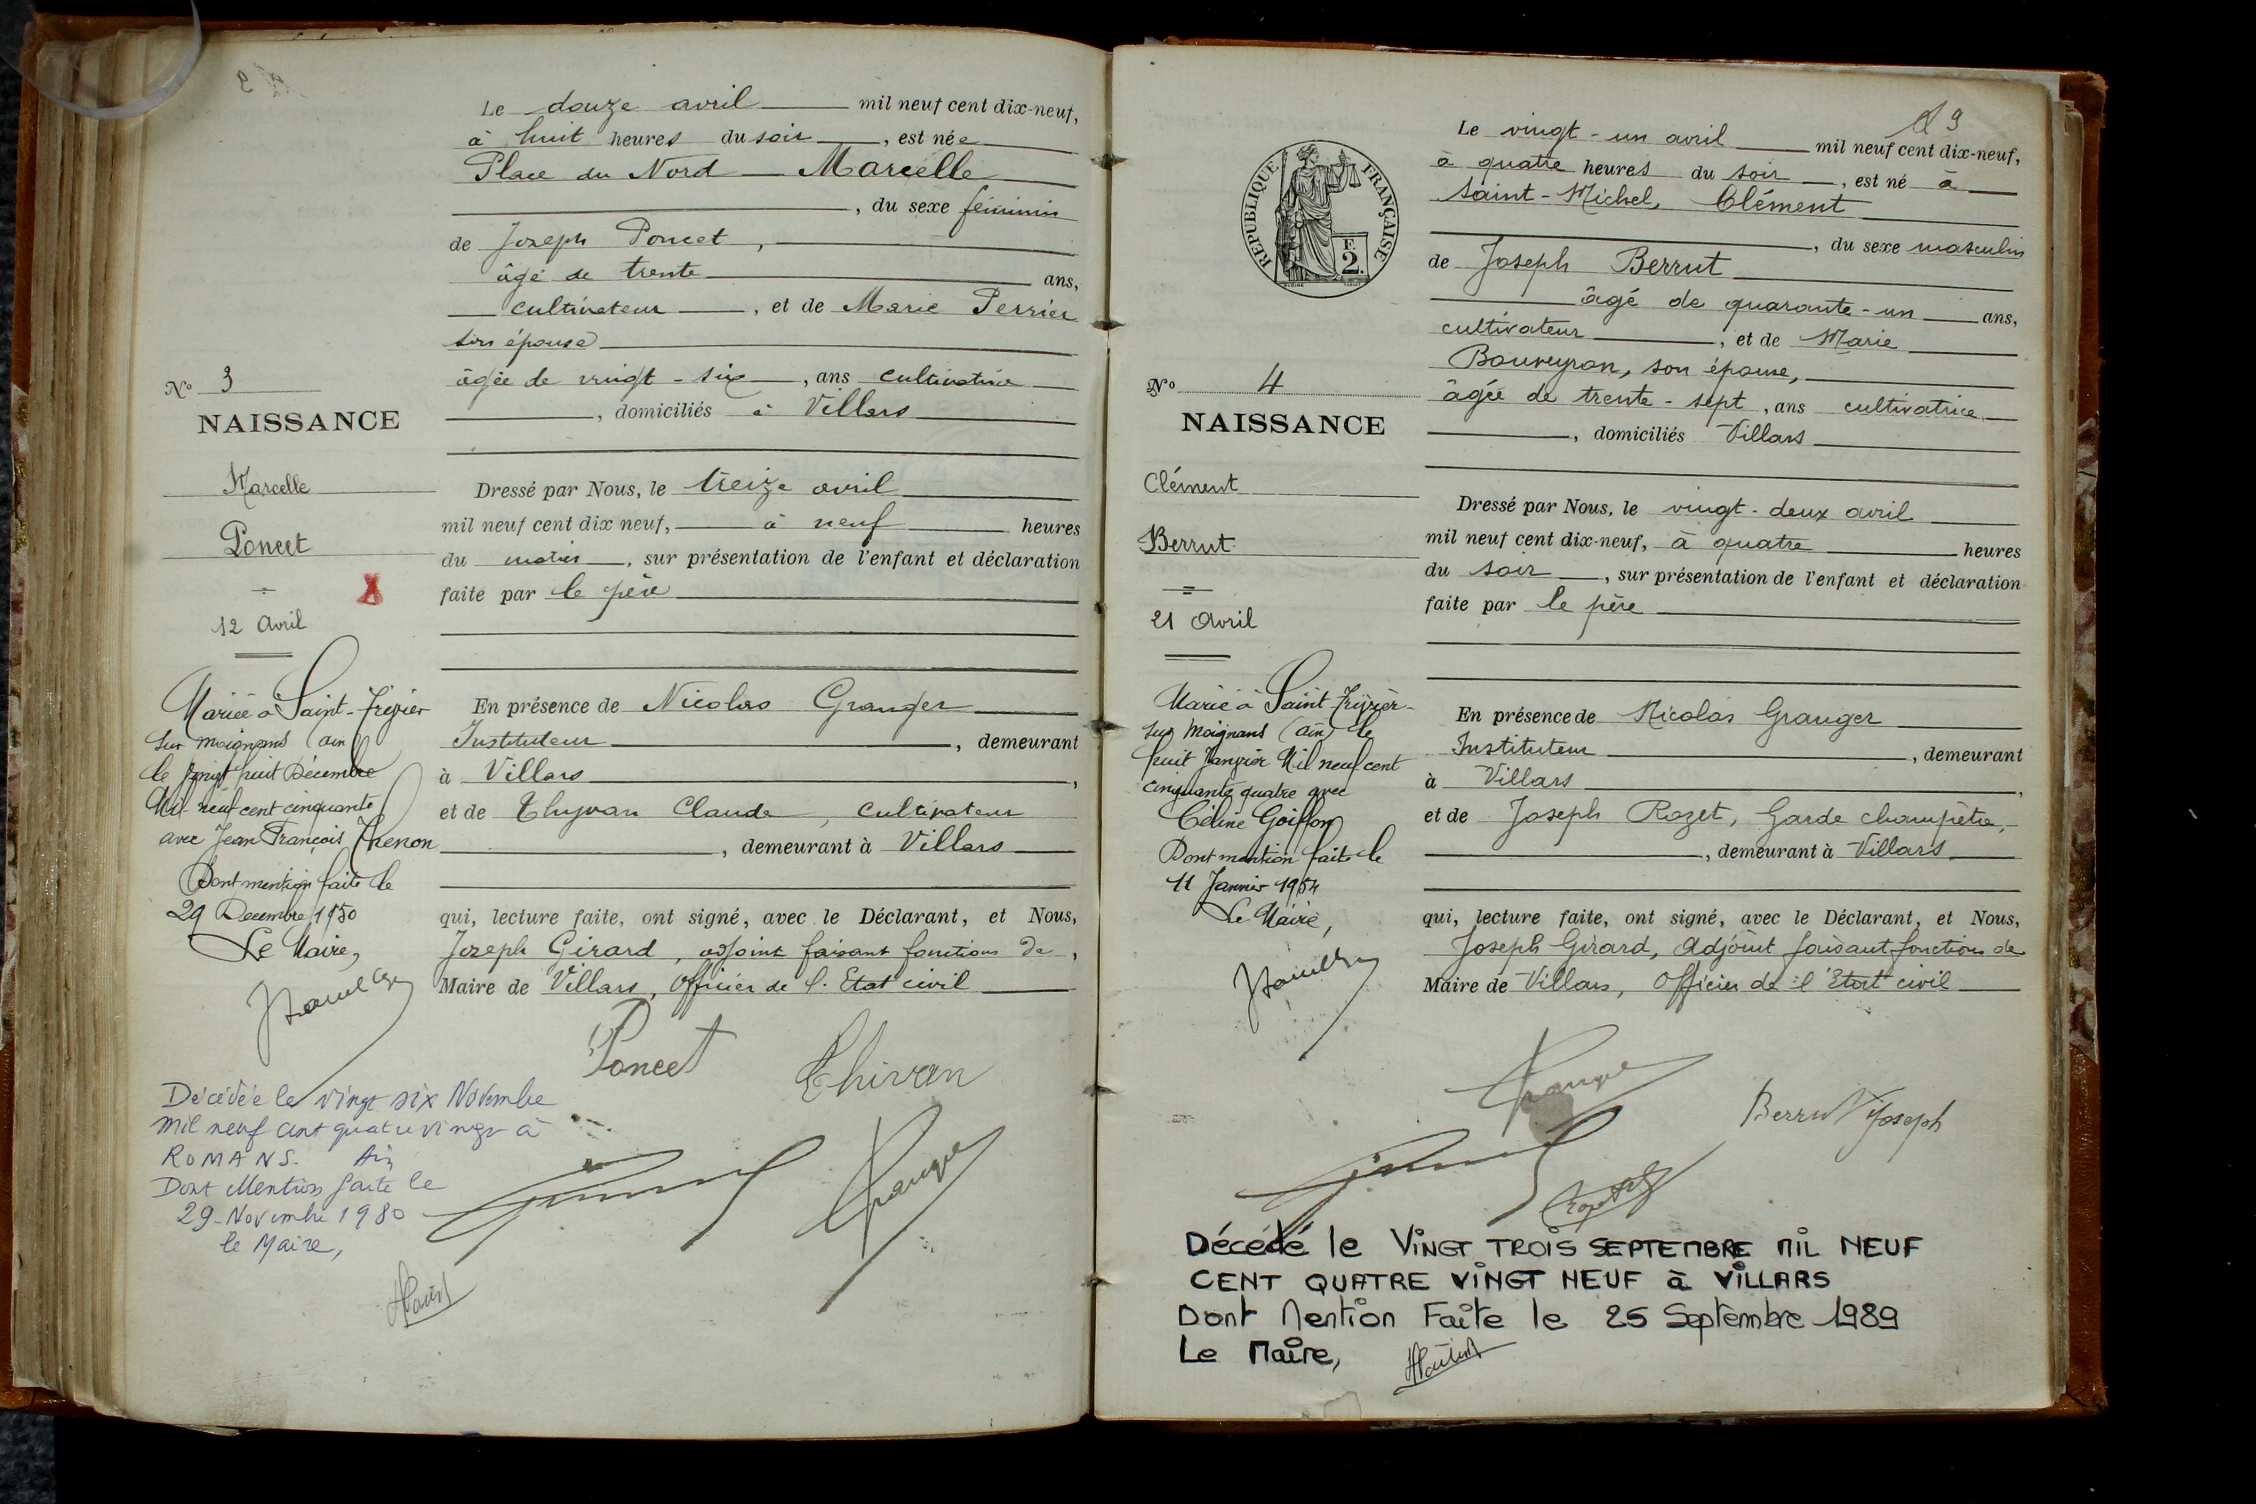 Le douze avril mil neuf cent dix-neuf,
à huit heures du soir, est née
Place du Nord Marcelle
, du sexe féminin
de Joseph Poncet,
âgé de trente ans,
cultivateur, et de Marie Perrier
son épouse
âgée de vingt-six, ans cultivatrice
, domiciliés à Villars
No 3
NAISSANCE
Marcelle
Poncet
12 Avril
Dressé par Nous, le treize avril
mil neuf cent dix neuf, à neuf heures
du matin, sur présentation de l'enfant et déclaration
faite par le père
En présence de Nicolas Granger
Instituteur, demeurant
à Villars,
et de Thyvan Claude, cultivateur
, demeurant à Villars
qui, lecture faite, ont signé, avec le Déclarant, et Nous,
Joseph Girard, adjoint faisant fonctions de,
Maire de Villars, Officier de l'Etat civil
Mariée à Saint-Trivier
sur Moignans (Ain)
le vingt huit Décembre
Mil neuf cent cinquante
avec Jean François Thenon
Dont mention faite le
29 Decembre 1950
Le Maire,
Poncet Thivan
Granger
Décédée le vingt six Novembre
mil neuf cent quatre vingt à
ROMANS. Ain
Dont Mention faite le
29-Novembre 1980
le Maire,
19
Le vingt-un avril mil neuf cent dix-neuf,
à quatre heures du soir, est né à
Saint-Michel, Clément
, du sexe masculin
de Joseph Berrut
âgé de quarante-un ans,
cultivateur, et de Marie
Bouveyron, son épouse,
âgée de trente-sept, ans cultivatrice
, domiciliés Villars
RÉPUBLIQUE FRANÇAISE
F.
2.
No 4
NAISSANCE
Clément
Berrut
21 Avril
Dressé par Nous, le vingt-deux avril
mil neuf cent dix-neuf, à quatre heures
du soir, sur présentation de l'enfant et déclaration
faite par le père
En présence de Nicolas Granger
Instituteur, demeurant
à Villars,
et de Joseph Rozet, Garde champêtre,
, demeurant à Villars
qui, lecture faite, ont signé, avec le Déclarant, et Nous,
Joseph Girard, Adjoint faisant fonction de
Maire de Villars, Officier de l'Etat civil
Marié à Saint Trivier-
sur Moignans (Ain) le
huit Janvier Mil neuf cent
cinquante quatre avec
Céline Goiffon
Dont mention faite le
11 Janvier 1954
Le Maire,
Granger
Berrut Joseph
Décédé le VINGT TROIS SEPTEMBRE MIL NEUF
CENT QUATRE VINGT NEUF à VILLARS
Dont Mention Faite le 25 Septembre 1989
Le Maire,